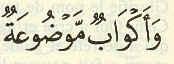 وَأَكْوَابٌ مَّوْضُوعَةٌ